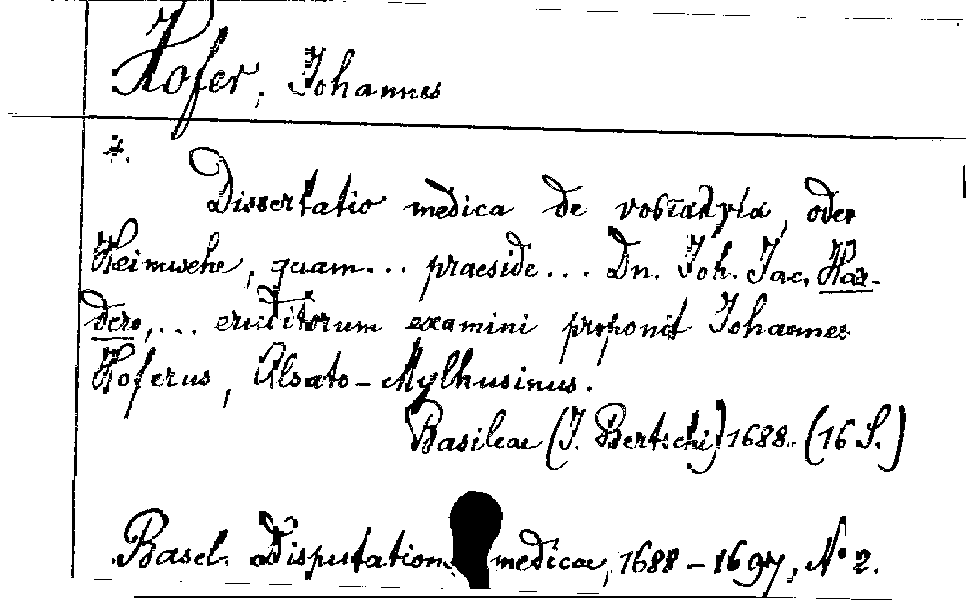 Hofer, Johannes
*.
Dissertatio medica de νοσταλγία, oder
Heimwehe, quam... praeside... Dn. Joh. Jac. Har-
dero,... eruditorum examini proponit Johannes
Hoferus, Alsato-Mylhusinus.
Basileae (J. Bertschi) 1688. (16 S.)
Basel. Disputation medicae, 1688-1697, N° 2.